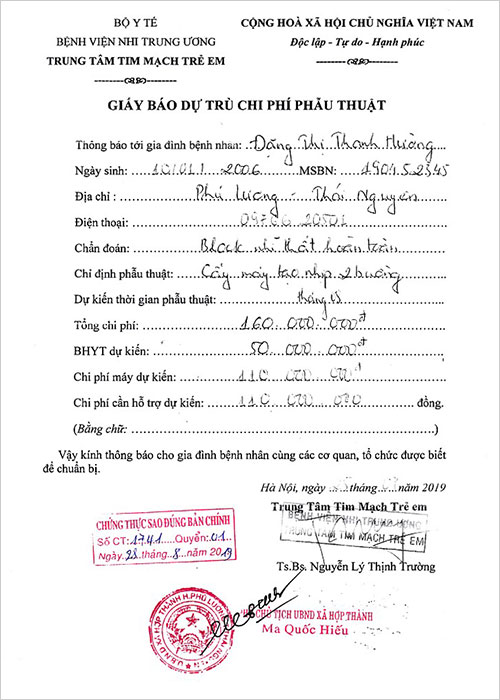 BỘ Y TẾ
BỆNH VIỆN NHI TRUNG ƯƠNG
TRUNG TÂM TIM MẠCH TRẺ EM
CỘNG HOÀ XÃ HỘI CHỦ NGHĨA VIỆT NAM
Độc lập - Tự do - Hạnh phúc
GIẤY BÁO DỰ TRÙ CHI PHÍ PHẪU THUẬT
Thông báo tới gia đình bệnh nhân: Đặng Thị Thanh Hường
Ngày sinh: 10/01/2006 MSBN: 190452345
Địa chỉ : Phú Lương - Thái Nguyên
Điện thoại:
Chẩn đoán: Block nhĩ thất hoàn toàn
Chỉ định phẫu thuật: Cấy máy tạo nhịp 2 buồng
Dự kiến thời gian phẫu thuật: tháng
Tổng chi phí: 160.000.000đ
BHYT dự kiến: 50.000.000đ
Chi phí máy dự kiến: 110 000 000đ
Chi phí cần hỗ trợ dự kiến: 110 000 000 đồng.
(Bằng chữ: )
Vậy kính thông báo cho gia đình bệnh nhân cùng các cơ quan, tổ chức được biết
để chuẩn bị.
Hà Nội, ngày tháng năm 2019
Trung Tâm Tim Mạch Trẻ em
BỆNH VIỆN NHI TRUNG ƯƠNG
TRUNG TÂM TIM MẠCH TRẺ EM
CHỨNG THỰC SAO ĐÚNG BẢN CHÍNH
Số CT: 1741 Quyển: 01
Ngày 28 tháng 8 năm 2019
Ts.Bs. Nguyễn Lý Thịnh Trường
CHỦ TỊCH UBND XÃ HỢP THÀNH
Ma Quốc Hiếu
U.B.N.D XÃ HỢP THÀNH H.PHÚ LƯƠNG